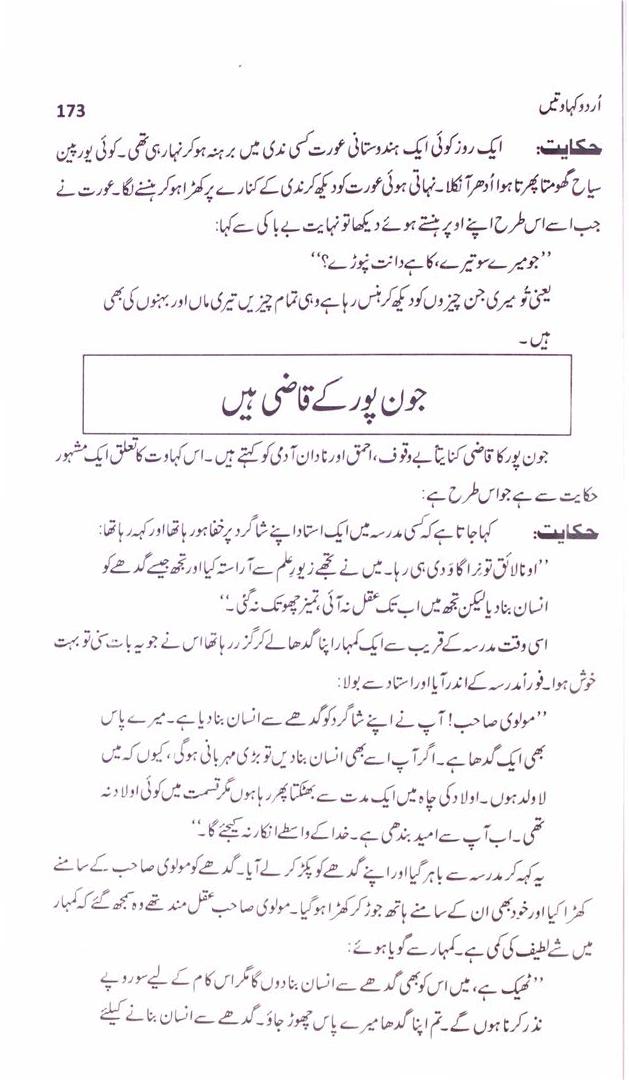 اُردو کہاوتیں
173
حکایت: ایک روز کوئی ایک ہندوستانی عورت کسی ندی میں برہنہ ہو کر نہا رہی تھی۔ کوئی یورپین
سیاح گھومتا پھرتا ہوا اُدھر آ نکلا۔ نہاتی ہوئی عورت کو دیکھ کر ندی کے کنارے پر کھڑا ہو کر ہنسنے لگا۔ عورت نے
جب اسے اس طرح اپنے اوپر ہنستے ہوئے دیکھا تو نہایت بے باکی سے کہا:
”جو میرے سو تیرے، کاہے دانت نپوڑے؟“
یعنی تُو میری جن چیزوں کو دیکھ کر ہنس رہا ہے وہی تمام چیزیں تیری ماں اور بہنوں کی بھی
ہیں۔
جون پور کے قاضی ہیں
جون پور کا قاضی کنایتاً بے وقوف، احمق اور نادان آدمی کو کہتے ہیں۔ اس کہاوت کا تعلق ایک مشہور
حکایت سے ہے جو اس طرح ہے:
حکایت: کہا جاتا ہے کہ کسی مدرسہ میں ایک استاد اپنے شاگرد پر خفا ہو رہا تھا اور کہہ رہا تھا:
”او نالائق تو نِرا گاؤدی ہی رہا۔ میں نے تجھے زیورِ علم سے آراستہ کیا اور تجھ جیسے گدھے کو
انسان بنا دیا لیکن تجھ میں اب تک عقل نہ آئی، تمیز چھو تک نہ گئی۔“
اسی وقت مدرسہ کے قریب سے ایک کمہار اپنا گدھا لے کر گزر رہا تھا اس نے جو یہ بات سنی تو بہت
خوش ہوا۔ فوراً مدرسہ کے اندر آیا اور استاد سے بولا:
”مولوی صاحب! آپ نے اپنے شاگرد کو گدھے سے انسان بنا دیا ہے۔ میرے پاس
بھی ایک گدھا ہے۔ اگر آپ اسے بھی انسان بنا دیں تو بڑی مہربانی ہوگی، کیوں کہ میں
لاولد ہوں۔ اولاد کی چاہ میں ایک مدت سے بھٹکتا پھر رہا ہوں مگر قسمت میں کوئی اولاد نہ
تھی۔ اب آپ سے امید بندھی ہے۔ خدا کے واسطے انکار نہ کیجئے گا۔“
یہ کہہ کر مدرسہ سے باہر گیا اور اپنے گدھے کو پکڑ کر لے آیا۔ گدھے کو مولوی صاحب کے سامنے
کھڑا کیا اور خود بھی ان کے سامنے ہاتھ جوڑ کر کھڑا ہو گیا۔ مولوی صاحب عقل مند تھے وہ سمجھ گئے کہ کمہار
میں شے لطیف کی کمی ہے۔ کمہار سے گویا ہوئے:
”ٹھیک ہے، میں اس کو بھی گدھے سے انسان بنا دوں گا مگر اس کام کے لیے سو روپے
نذر کرنا ہوں گے۔ تم اپنا گدھا میرے پاس چھوڑ جاؤ۔ گدھے سے انسان بنانے کیلئے